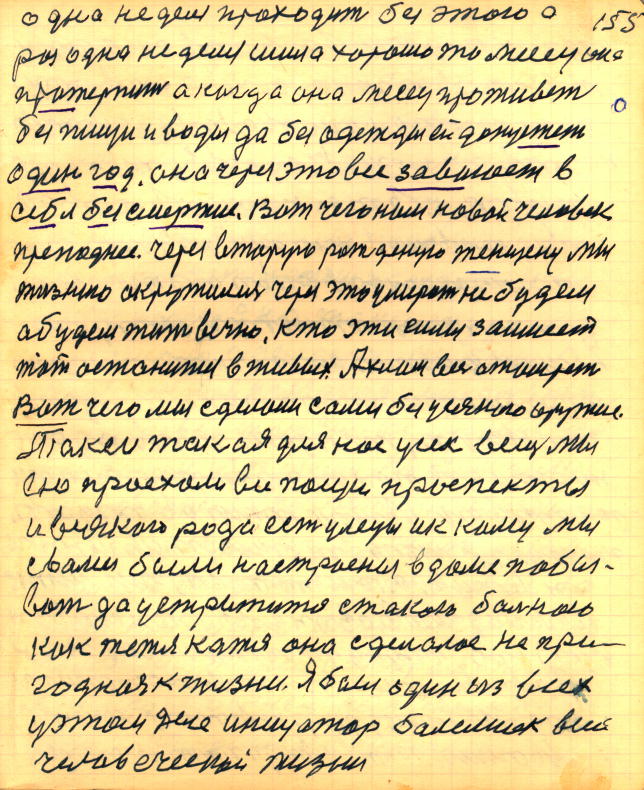 одна недел проходит без этого а 155
раз одна неделя хорошо то месец она
протерпит а когда она месец проживет
без пищи и воды да без одежды ей допустют
один год. она через это все завоюет в
себя бессмертие. Вот чего нам новой человек
преподнес. через вторую рожденую женщену мы
жизнию окружился через это умерат не будем
а будем жит вечно. Кто эти силы займеет
тот останится в живых. А хлам вес отомрет
Вот чего мы сделали сами без усякого оружие.
такая для нас усех вещ мы
ею проехали все проспекты
и всякого рода ест улецы и к кому мы
с вами были настроены в доме побы-
ват да устретится с такою бальною
как тетя катя она сделалас не при-
годная к жизни. Я был один из всех
у этом деле инициатор балеших всей
человеческой жизни